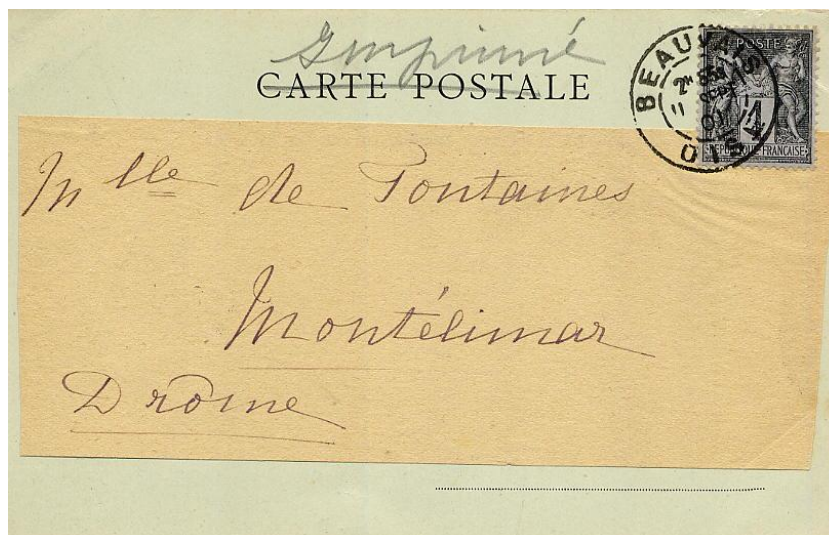 Imprimé
CARTE POSTALE
BEAUVAIS
2E
11 SEPT
01
OISE
POSTE
1
REPUBLIQUE FRANCAISE
Mlle de Fontaines
Montélimar
Drôme